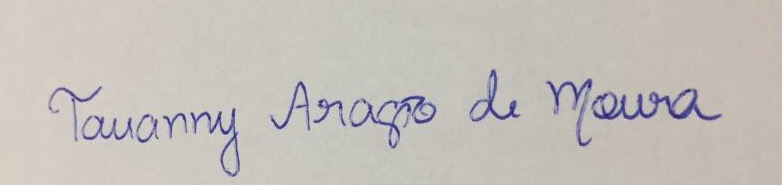 Tauanny Aragão de Moura